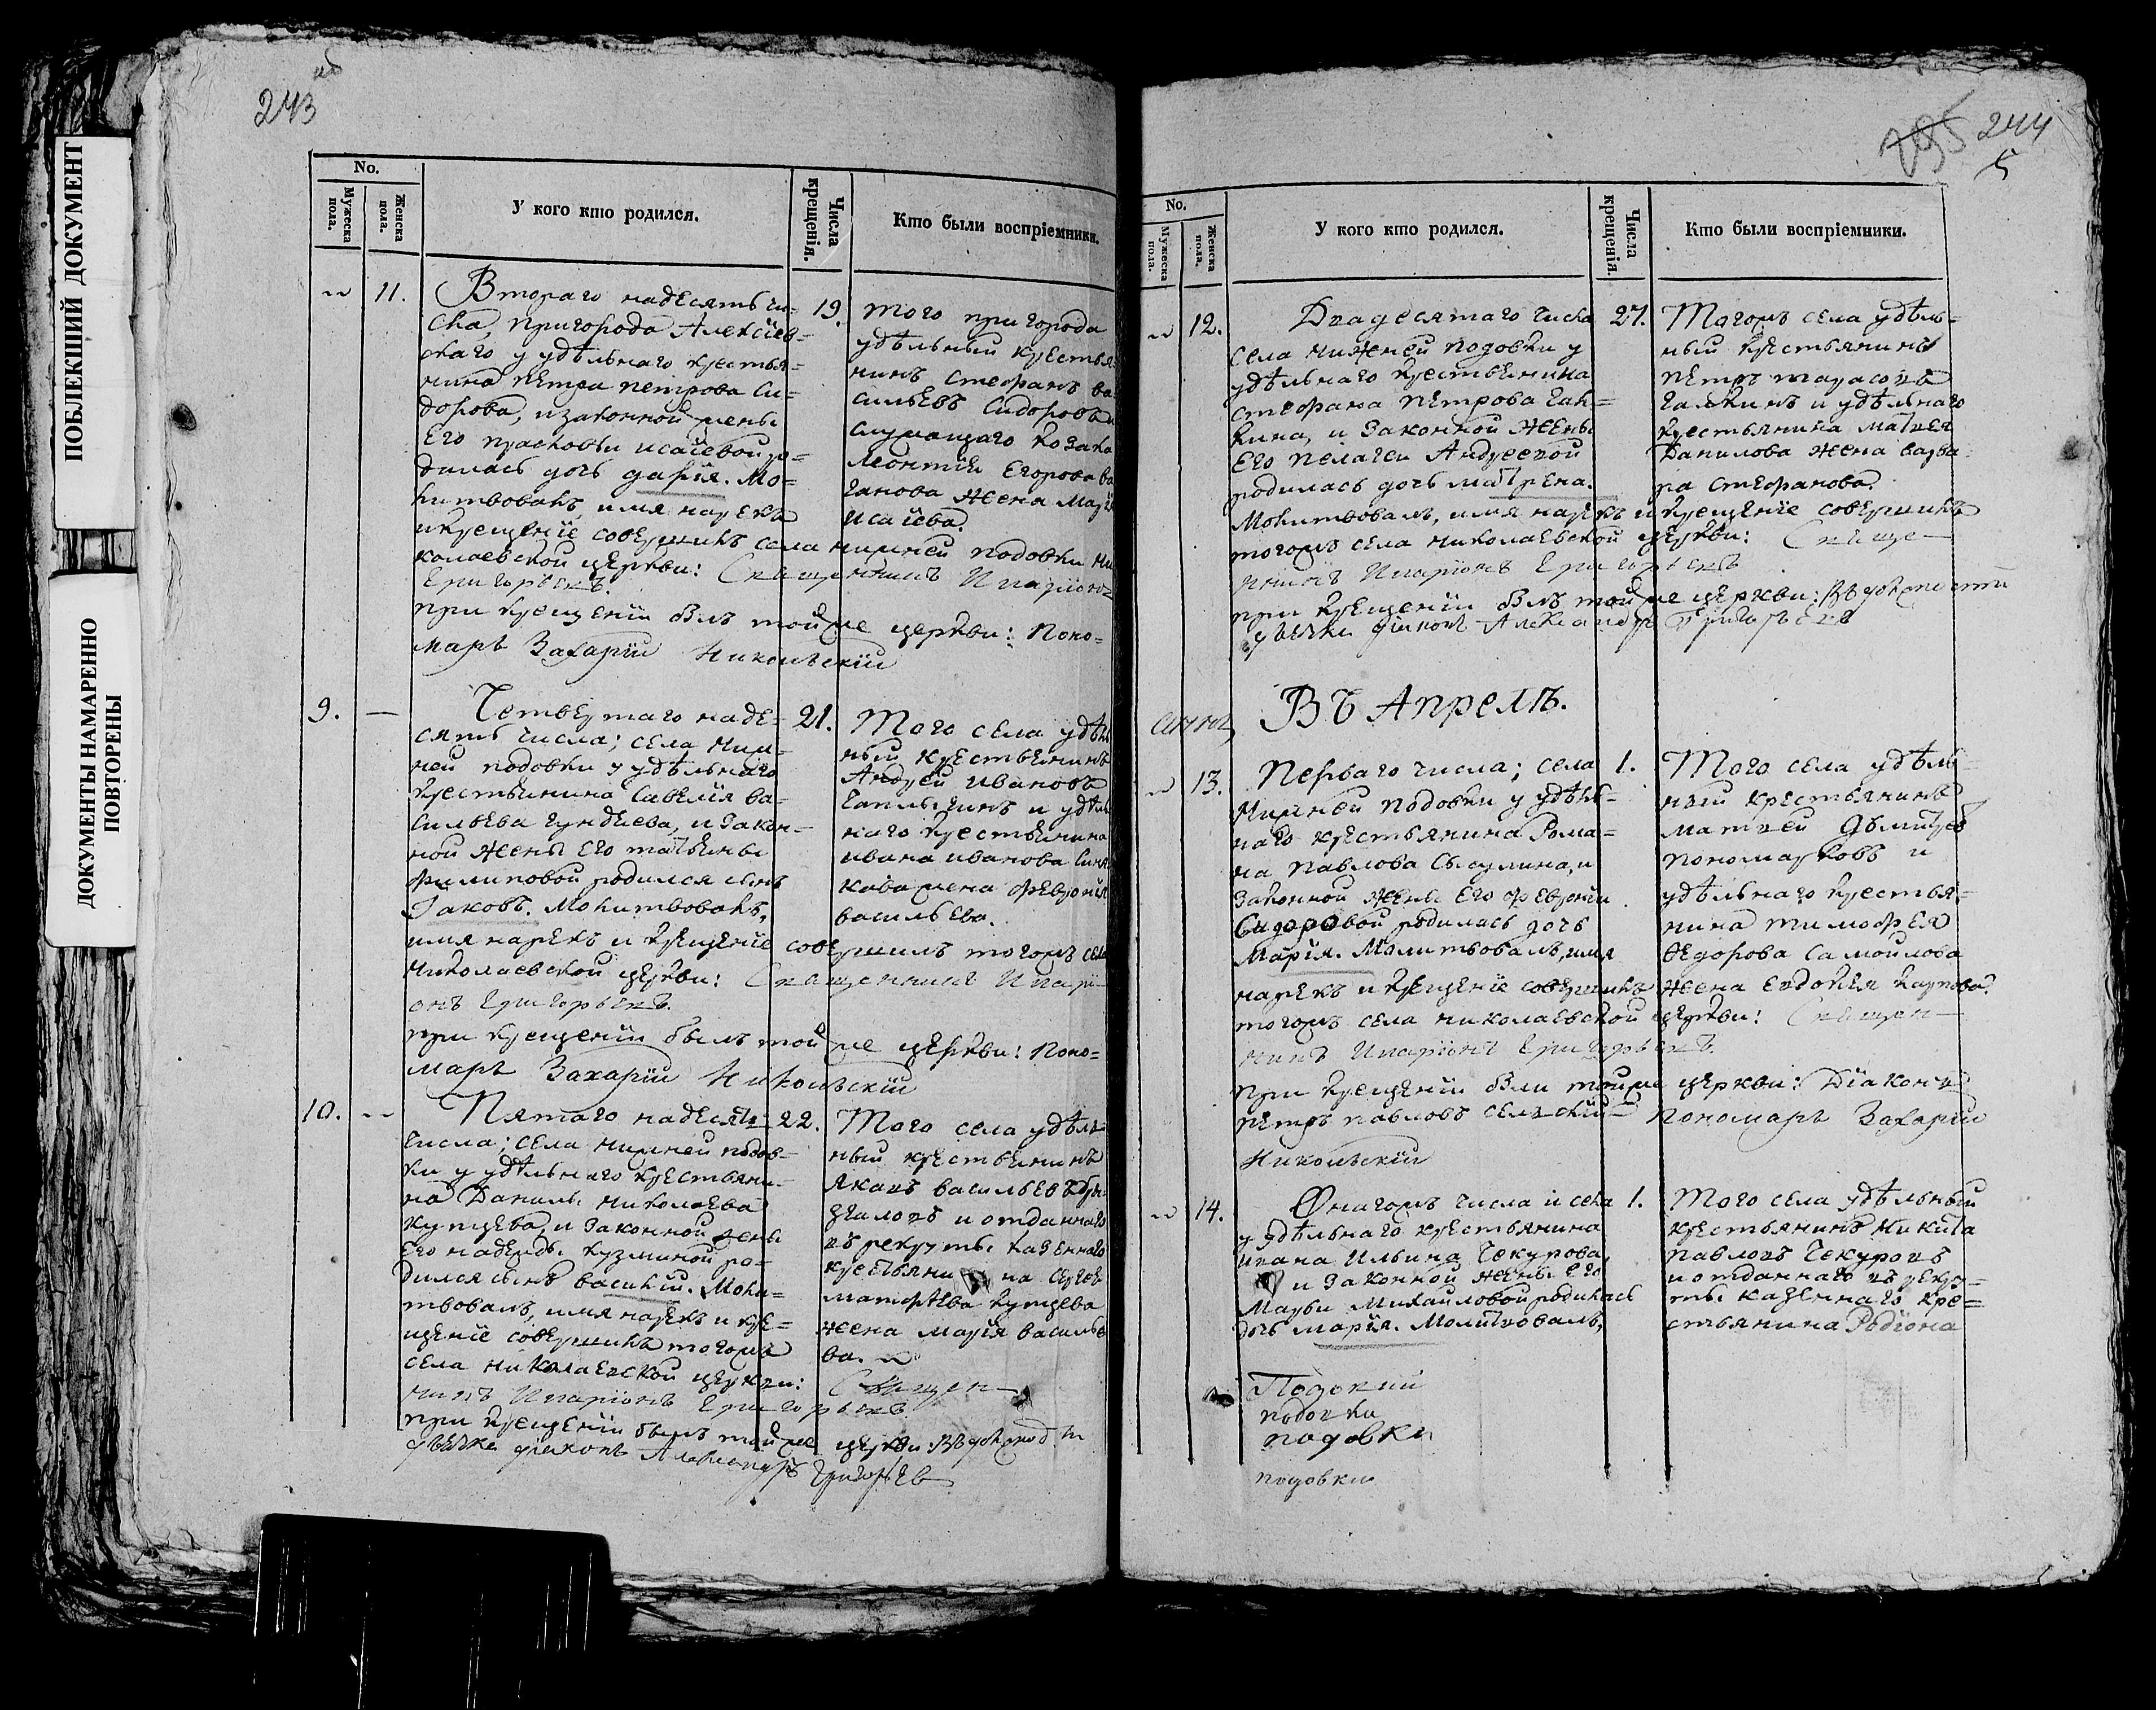 ПОБЛЕКШИЙ ДОКУМЕНТ
ДОКУМЕНТЫ НАМАРЕННО
ПОВТОРЕНЫ
243
No.
Мужеска пола.
Женска пола.
У кого кто родился.
Числа крещенія.
Кто были воспріемники.
11.
Втораго надесять чи-
сла, пригорода Алексіев-
скаго у удѣльнаго крестья-
нина петра петрова Си-
дорова, и законной жены
Его прасковьи исаіевой ро-
дилась дочь дарія. Мо-
литвовалъ, имя нарекъ
и крещеніе совершилъ села нижней подовки Ни-
колаевской церкви: Священникъ Иларіонъ
Григорьевъ.
при крещеніи былъ тойже церкви: Поно-
марь Захарій Никольскій
19.
того пригорода
удѣльный крестья-
нинъ стефанъ ва-
сильевъ Сидоровъ и
служащаго козака
леонтія Егорова
жена Марія
исаіева.
9.
Четвертаго наде-
сять числа; села ниж-
ней подовки у удѣльнаго
крестьянина Савелія ва-
сильева гундиева, и закон-
ной жены его татьяны
филиповой родился сынъ
Іаковъ. Молитвовалъ,
имя нарекъ и крещеніе совершилъ тогожъ села
Николаевской церкви: Священникъ Илари-
онъ Григорьевъ.
при крещеніи былъ тойже церкви: Поно-
марь Захарій Никольскій
21.
Того села удѣль
ный крестьянинъ
Андрей Ивановъ
и удѣль
наго крестьянина
ивана иванова
жена феврония
васильева.
10.
Пятаго надесять
числа; села нижней подов-
ки у удѣльнаго крестьяни-
на Данилы николаева
купцева, и законной жены
его надежды кузминой ро-
дился сынъ василий. Моли-
твовалъ, имя нарекъ и кре-
щеніе совершилъ тогожъ
села николаевской церкви: Священ-
никъ Иларіонъ Григорьевъ.
при крещеніи былъ тойже церкви въ должности
дьячка діаконъ Александръ Григорьев
22.
Того села удѣль-
ный крестьянинъ
яковъ васильевъ
и отданнаго
въ рекруты казеннаго
крестьяни на Сергея
матфѣева купцева
жена марія василье
ва.
244
5
No.
Мужеска пола.
Женска пола.
У кого кто родился.
Числа крещенія.
Кто были воспріемники.
12.
Двадесятаго числа
села нижней подовки у
удѣльнаго крестьянина
стефана петрова гал-
кина, и законной жены
Его пелагеи Андреевой
родилась дочь матрена.
Молитвовалъ, имя нарекъ и крещеніе совершилъ
тогожъ села николаевской церкви: Свяще-
нникъ Иларіонъ Григорьевъ
при крещеніи былъ тойже церкви: въ должности
дьячка діаконъ Александръ Григорьевъ
27.
Тогожъ села удѣль-
ный крестьянинъ
петръ тарасовъ
галкинъ и удѣльнаго
крестьянина матвея
Данилова жена варва-
ра стефанова.
Въ Апрелѣ.
13.
Перваго числа; села
Нижней подовки у удѣль-
наго крестьянина Рома-
на павлова Сысулина, и
законной жены его февроніи
Сидоровой родилась дочь
Марія. Молитвовалъ, имя
нарекъ и крещеніе совершилъ
тогожъ села николаевской церкви: Священ-
никъ Иларіонъ Григорьевъ.
при крещеніи были тойже церкви: Діаконъ
петръ павловъ сельскій Пономарь Захарій
Никольскій
1.
Того села удѣль-
ный крестьянинъ
матвей дьмитрев
пономарковъ и
удѣльнаго крестья-
нина тимофея
Федорова Самойлова
жена Евдокия карпова.
14.
Онагожъ числа и села
у удѣльнаго крестьянина
ивана Ильина Чекурова,
и законной жены его
Марьи Михайловой родилась
дочь марія. Молитвовалъ,
1.
Того села удѣльный
крестьянинъ никита
павловъ Чекуровъ
и отданнаго въ рекру-
ты казеннаго кре-
стьянина Родіона
подовки
подовки
подовки